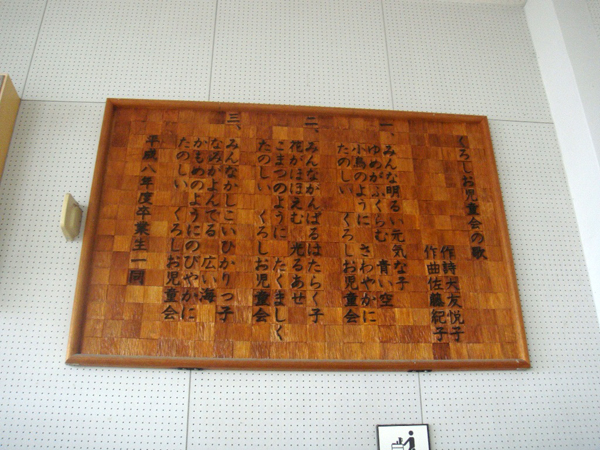 くろしお児童会の歌
作詩 天友悦子
作曲 佐藤紀子
一、みんな明るい元気な子
ゆめがふくらむ 青い空
小鳥のように さわやかに
たのしい くろしお児童会
二、みんながんばるはたらく子
花がほほえむ 光るあせ
こまつのように たくましく
たのしい くろしお児童会
三、みんなかしこいひかりっ子
なみがよんでる 広い海
かもめのようにのびやかに
たのしい くろしお児童会
平成八年度卒業生一同